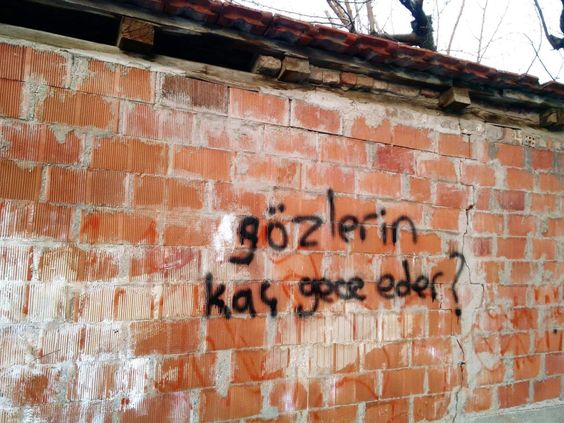 gözlerin
kaç gece eder?